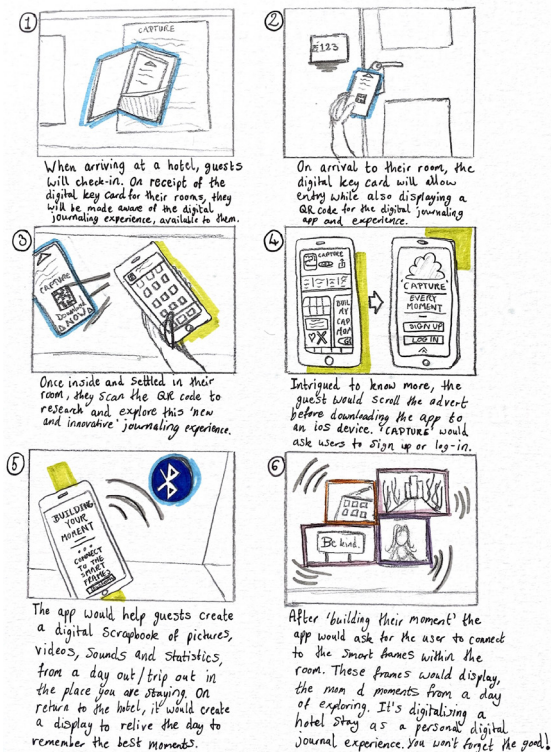 1
CAPTURE
When arriving at a hotel, guests
will check-in. On receipt of the
digital key card for their rooms, they
will be made aware of the digital
journaling experience, available to them.
2
123
On arrival to their room, the
digital key card will allow
entry while also displaying a
QR code for the digital journaling
app and experience.
3
CAPTURE
DOWNLOAD
NOW
Once inside and settled in their
room, they scan the QR code to
research and explore this 'new
and innovative' journaling experience.
4
CAPTURE
'CAPTURE'
EVERY
MOMENT
SIGN UP
LOG IN
Intrigued to know more, the
guest would scroll the advert
before downloading the app to
an ios device. 'CAPTURE' would
ask users to sign up or log-in.
5
BUILDING
YOUR
MOMENT
CONNECT
TO THE
SMART
FRAMES
The app would help guests create
a digital Scrapbook of pictures,
videos, sounds and statistics,
from a day out/trip out in
the place you are staying. On
return to the hotel, it would create
a display to relive the day to
remember the best moments.
6
Be kind.
After 'building their moment' the
app would ask for the user to connect
to the smart frames within the
room. These frames would display,
the mon d moments from a day
of exploring. It's digitalising a
hotel stay as a personal digital
journal experience you won't forget the good!